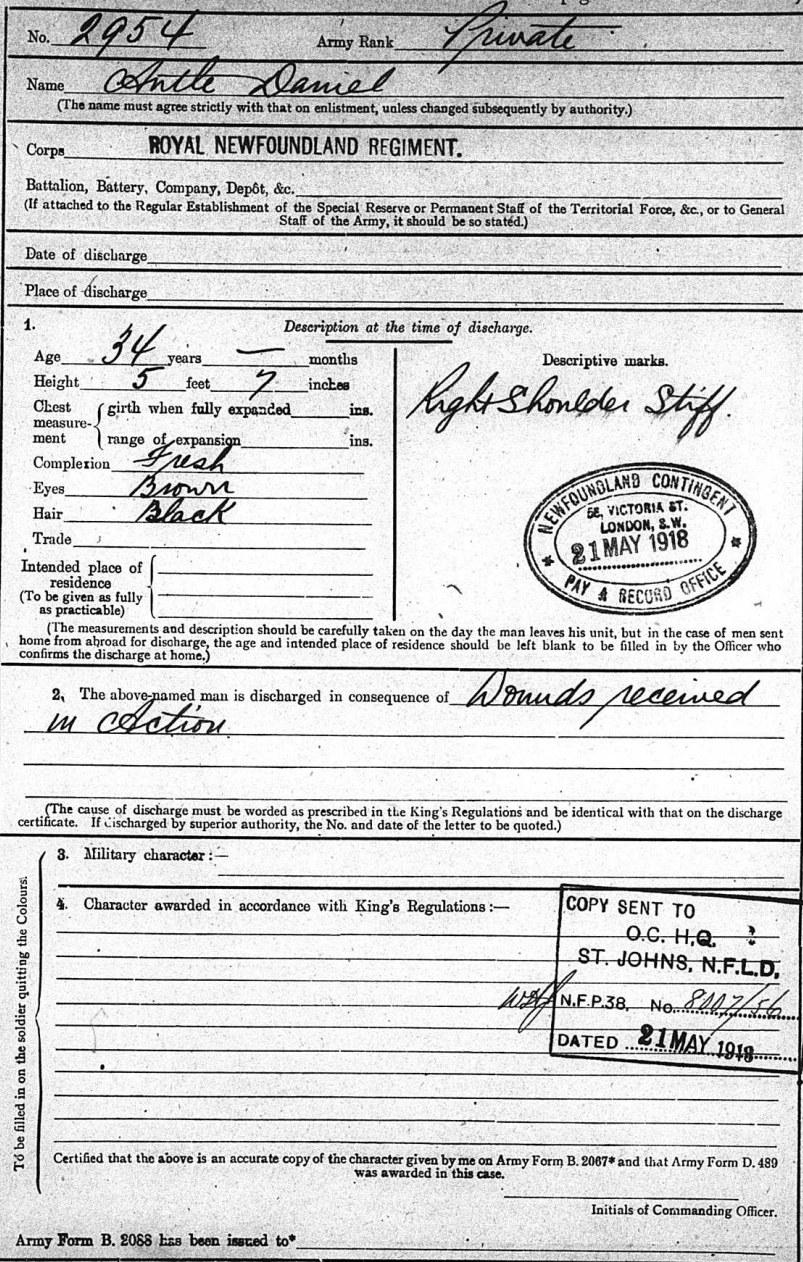 No. 2954 Army Rank Private
Name Antle Daniel
(The name must agree strictly with that on enlistment, unless changed subsequently by authority.)
Corps ROYAL NEWFOUNDLAND REGIMENT.
Battalion, Battery, Company, Depôt, &c.
(If attached to the Regular Establishment of the Special Reserve or Permanent Staff of the Territorial Force, &c., or to General
Staff of the Army, it should be so stated.)
Date of discharge
Place of discharge
1. Description at the time of discharge.
Age 34 years — months
Height 5 feet 7 inches
Chest measure-ment girth when fully expanded ins.
range of expansion ins.
Complexion Fresh
Eyes Brown
Hair Black
Trade
Intended place of
residence
(To be given as fully
as practicable)
Descriptive marks.
Right Shoulder Stiff.
NEWFOUNDLAND CONTINGENT
58, VICTORIA ST.
LONDON, S.W.
21 MAY 1918
PAY & RECORD OFFICE
(The measurements and description should be carefully taken on the day the man leaves his unit, but in the case of men sent
home from abroad for discharge, the age and intended place of residence should be left blank to be filled in by the Officer who
confirms the discharge at home.)
2, The above-named man is discharged in consequence of Wounds received
in Action
(The cause of discharge must be worded as prescribed in the King's Regulations and be identical with that on the discharge
certificate. If discharged by superior authority, the No. and date of the letter to be quoted.)
To be filled in on the soldier quitting the Colours.
3. Military character:—
4. Character awarded in accordance with King's Regulations:—
COPY SENT TO
O.C. H.Q.
ST. JOHNS, N.F.L.D.
N.F.P.38, No. 8007/56
DATED 21 MAY 1918
Certified that the above is an accurate copy of the character given by me on Army Form B. 2067* and that Army Form D. 489
was awarded in this case.
Initials of Commanding Officer.
Army Form B. 2088 has been issued to*